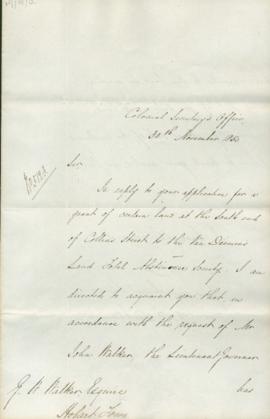 Colonial Secretary's Office
30th November
Sir,
In reply to your application for a
grant of certain land at the South end
of Collins Street to the Van Diemens
Land Total Abstinence Society, I am
directed to acquaint you that in
accordance with the request of Mr
John Walker, the Lieutenant Governor
has
G. W. Walker Esquire
Hobart Town